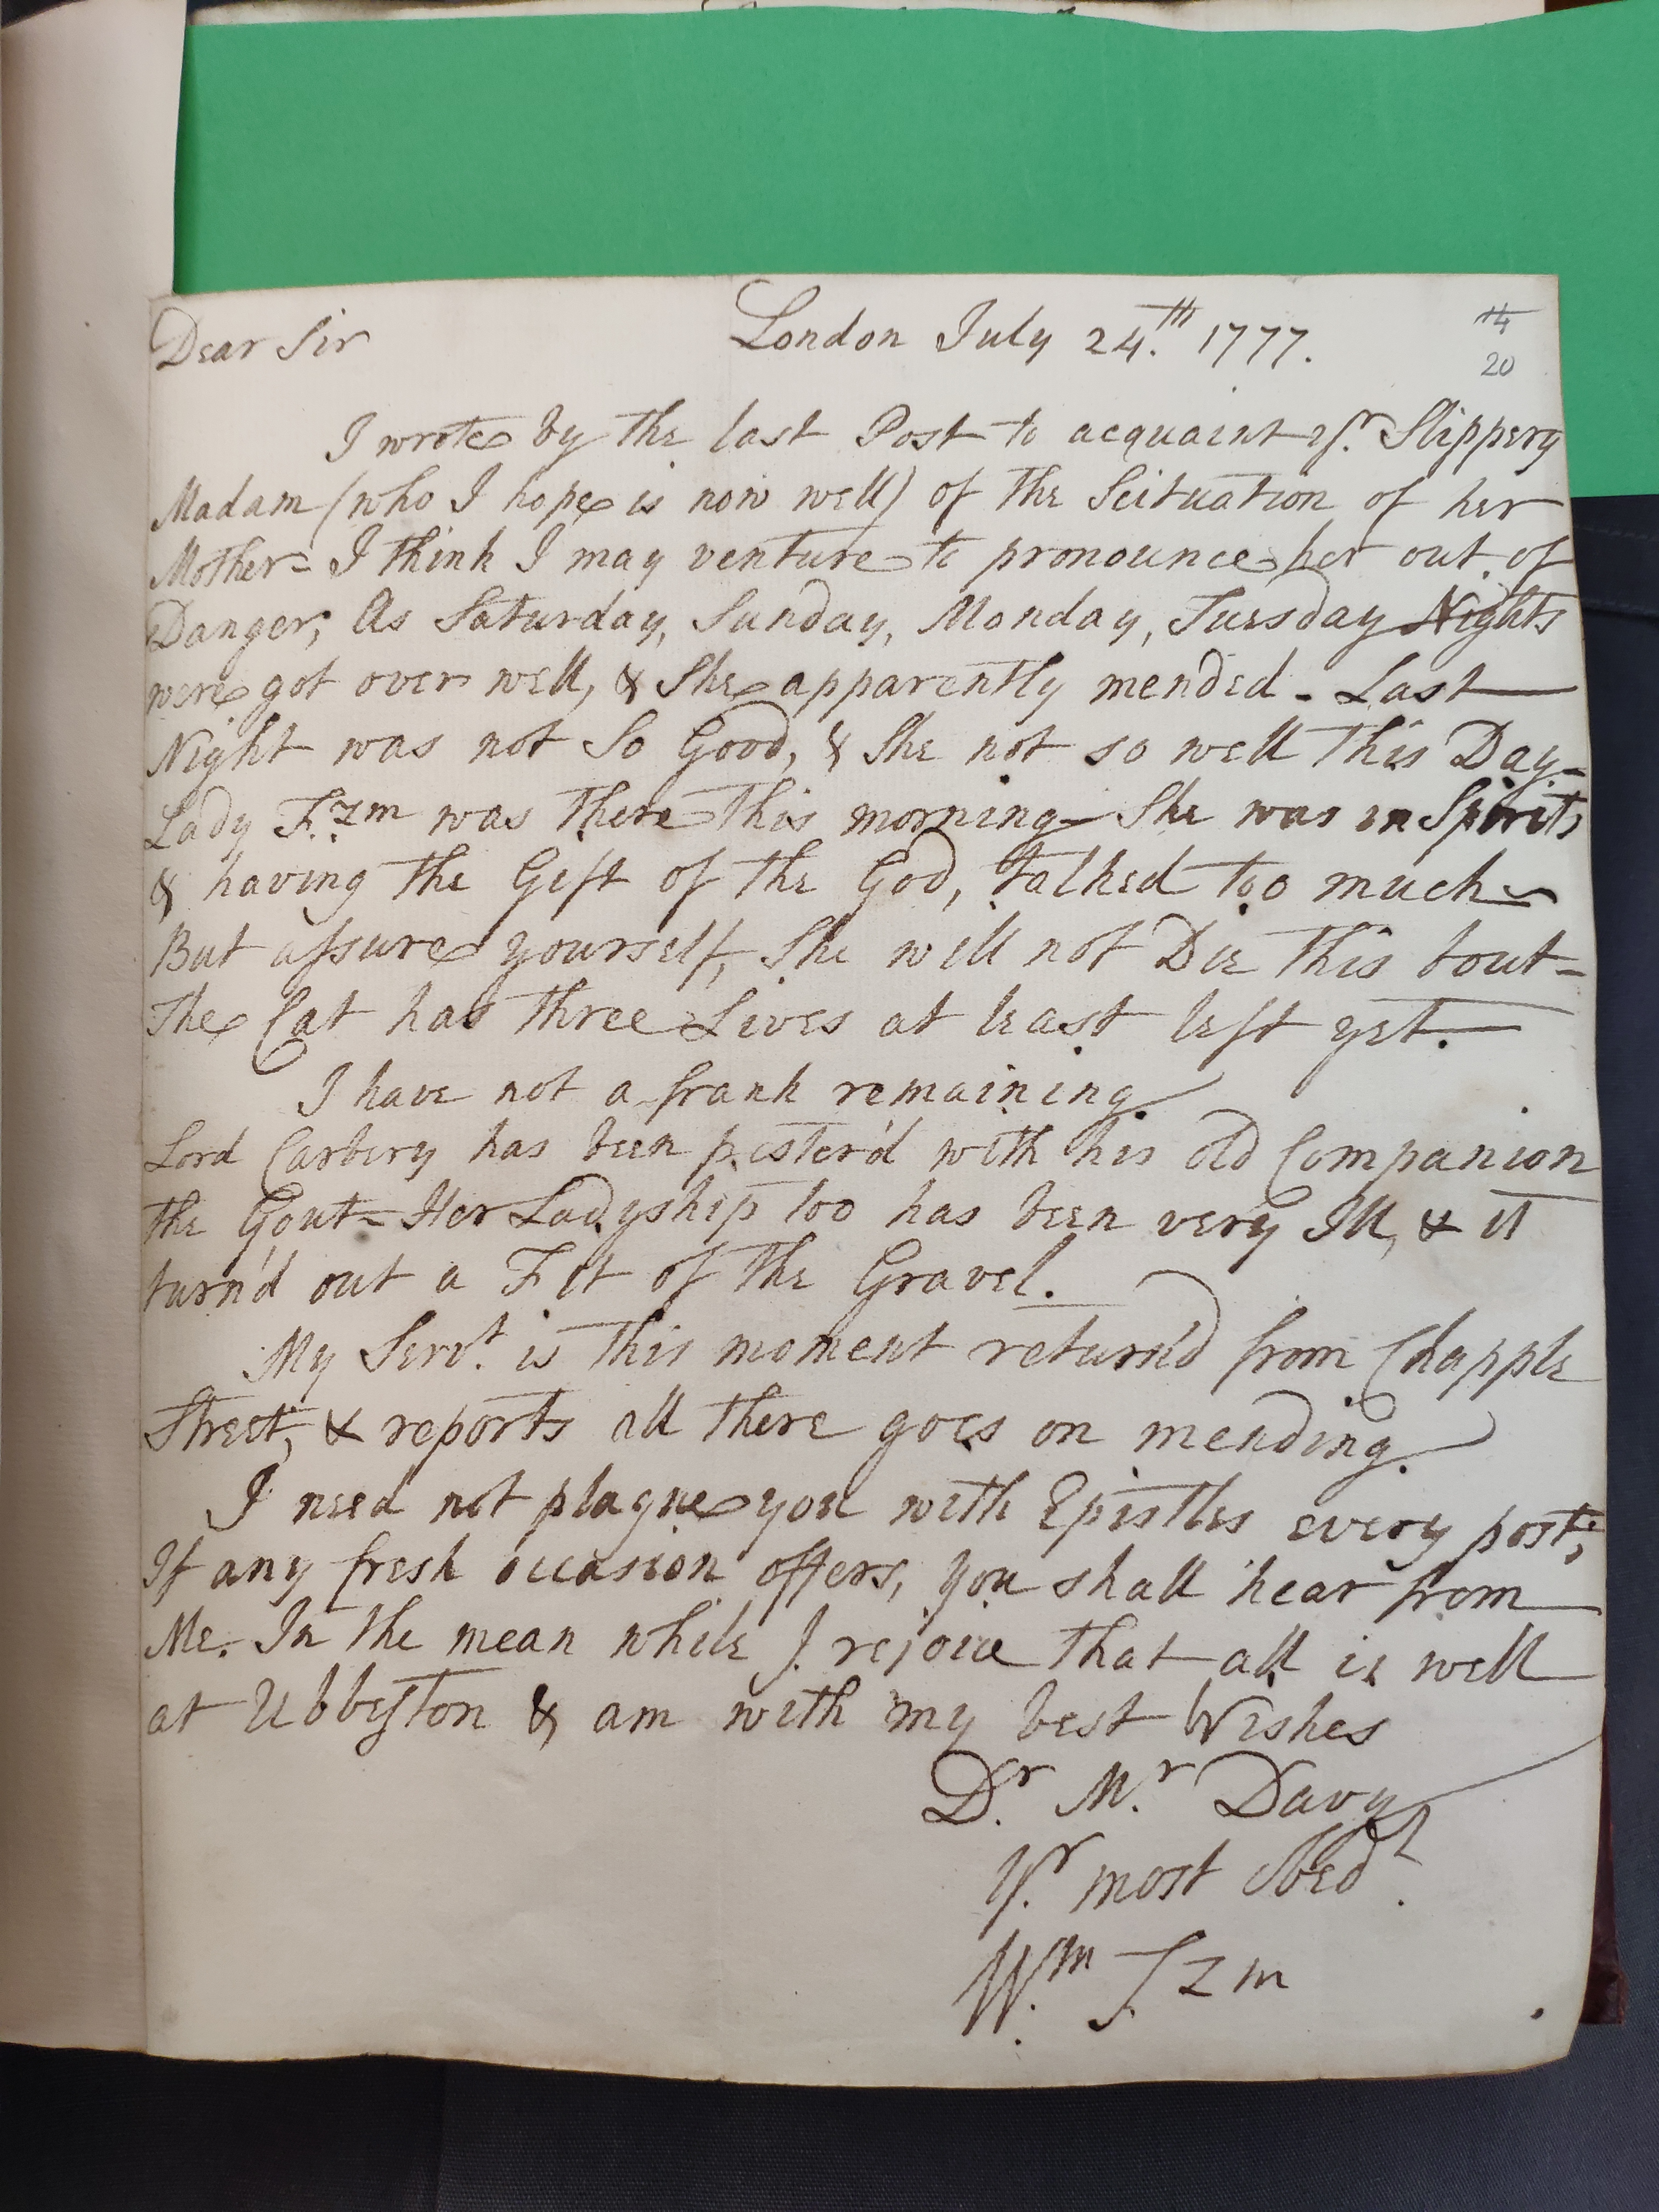 Dear Sir London July 24.th 1777.
14
20
I wrote by the last Post to acquaint yr. Slippery
Madam (who I hope is now well) of the Scituation of her
Mother = I think I may venture to pronounce her out of
Danger; As Saturday, Sunday, Monday, Tuesday Nights
were got over well, & She apparently mended - Last
Night was not So Good, & She not so well this Day -
Lady F.zm was there this morning - She was in Spirits
& having the Gift of the God, talked too much
But assure yourself, She will not Die this bout -
The Cat has three Lives at least left yet.
I have not a frank remaining.
Lord Carbery has been pester'd with his old Companion
the Gout = Her Ladyship too has been very Ill, & it
turn'd out a Fit of the Gravel.
My Servt. is this moment return'd from Chapple
Street, & reports all there goes on mending.
I need not plague you with Epistles every post;
If any fresh occasion offers, you shall hear from
Me. In the mean while I rejoice that all is well
at Ubbeston & am with my best Wishes
Dr. Mr. Davy
Yr. most Obedt.
Wm. F.zm